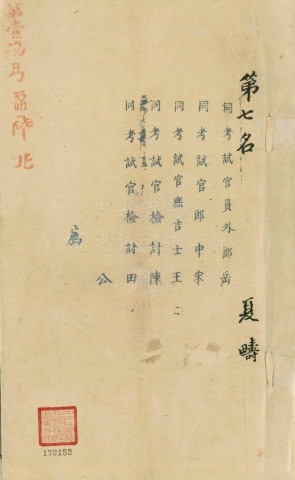 第七名 夏疇
同考試官員外郎岳
同考試官郎中宋
同考試官庶吉士王
同考試官檢討陳
同考試官檢討田
公
為
第壹場
172152